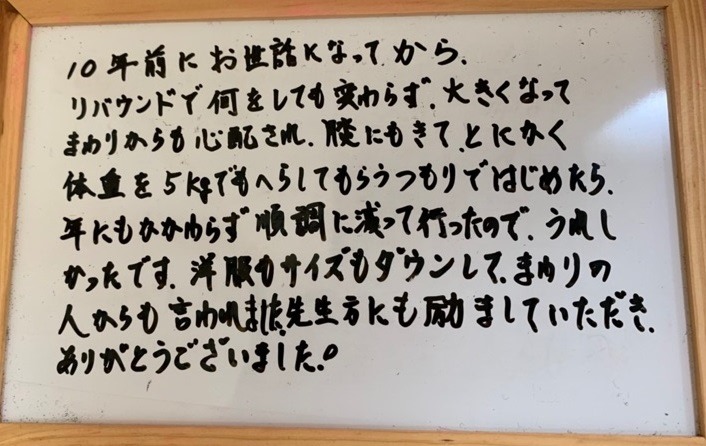 10年前にお世話になってから、
リバウンドで何をしても変わらず、大きくなって
まわりからも心配され、膝にもきて、とにかく
体重を5kgでもへらしてもらうつもりではじめたら、
年にもかかわらず順調に減って行ったので、うれし
かったです。洋服もサイズもダウンして、まわりの
人からも言われました。先生方にも励ましていただき、
ありがとうございました。